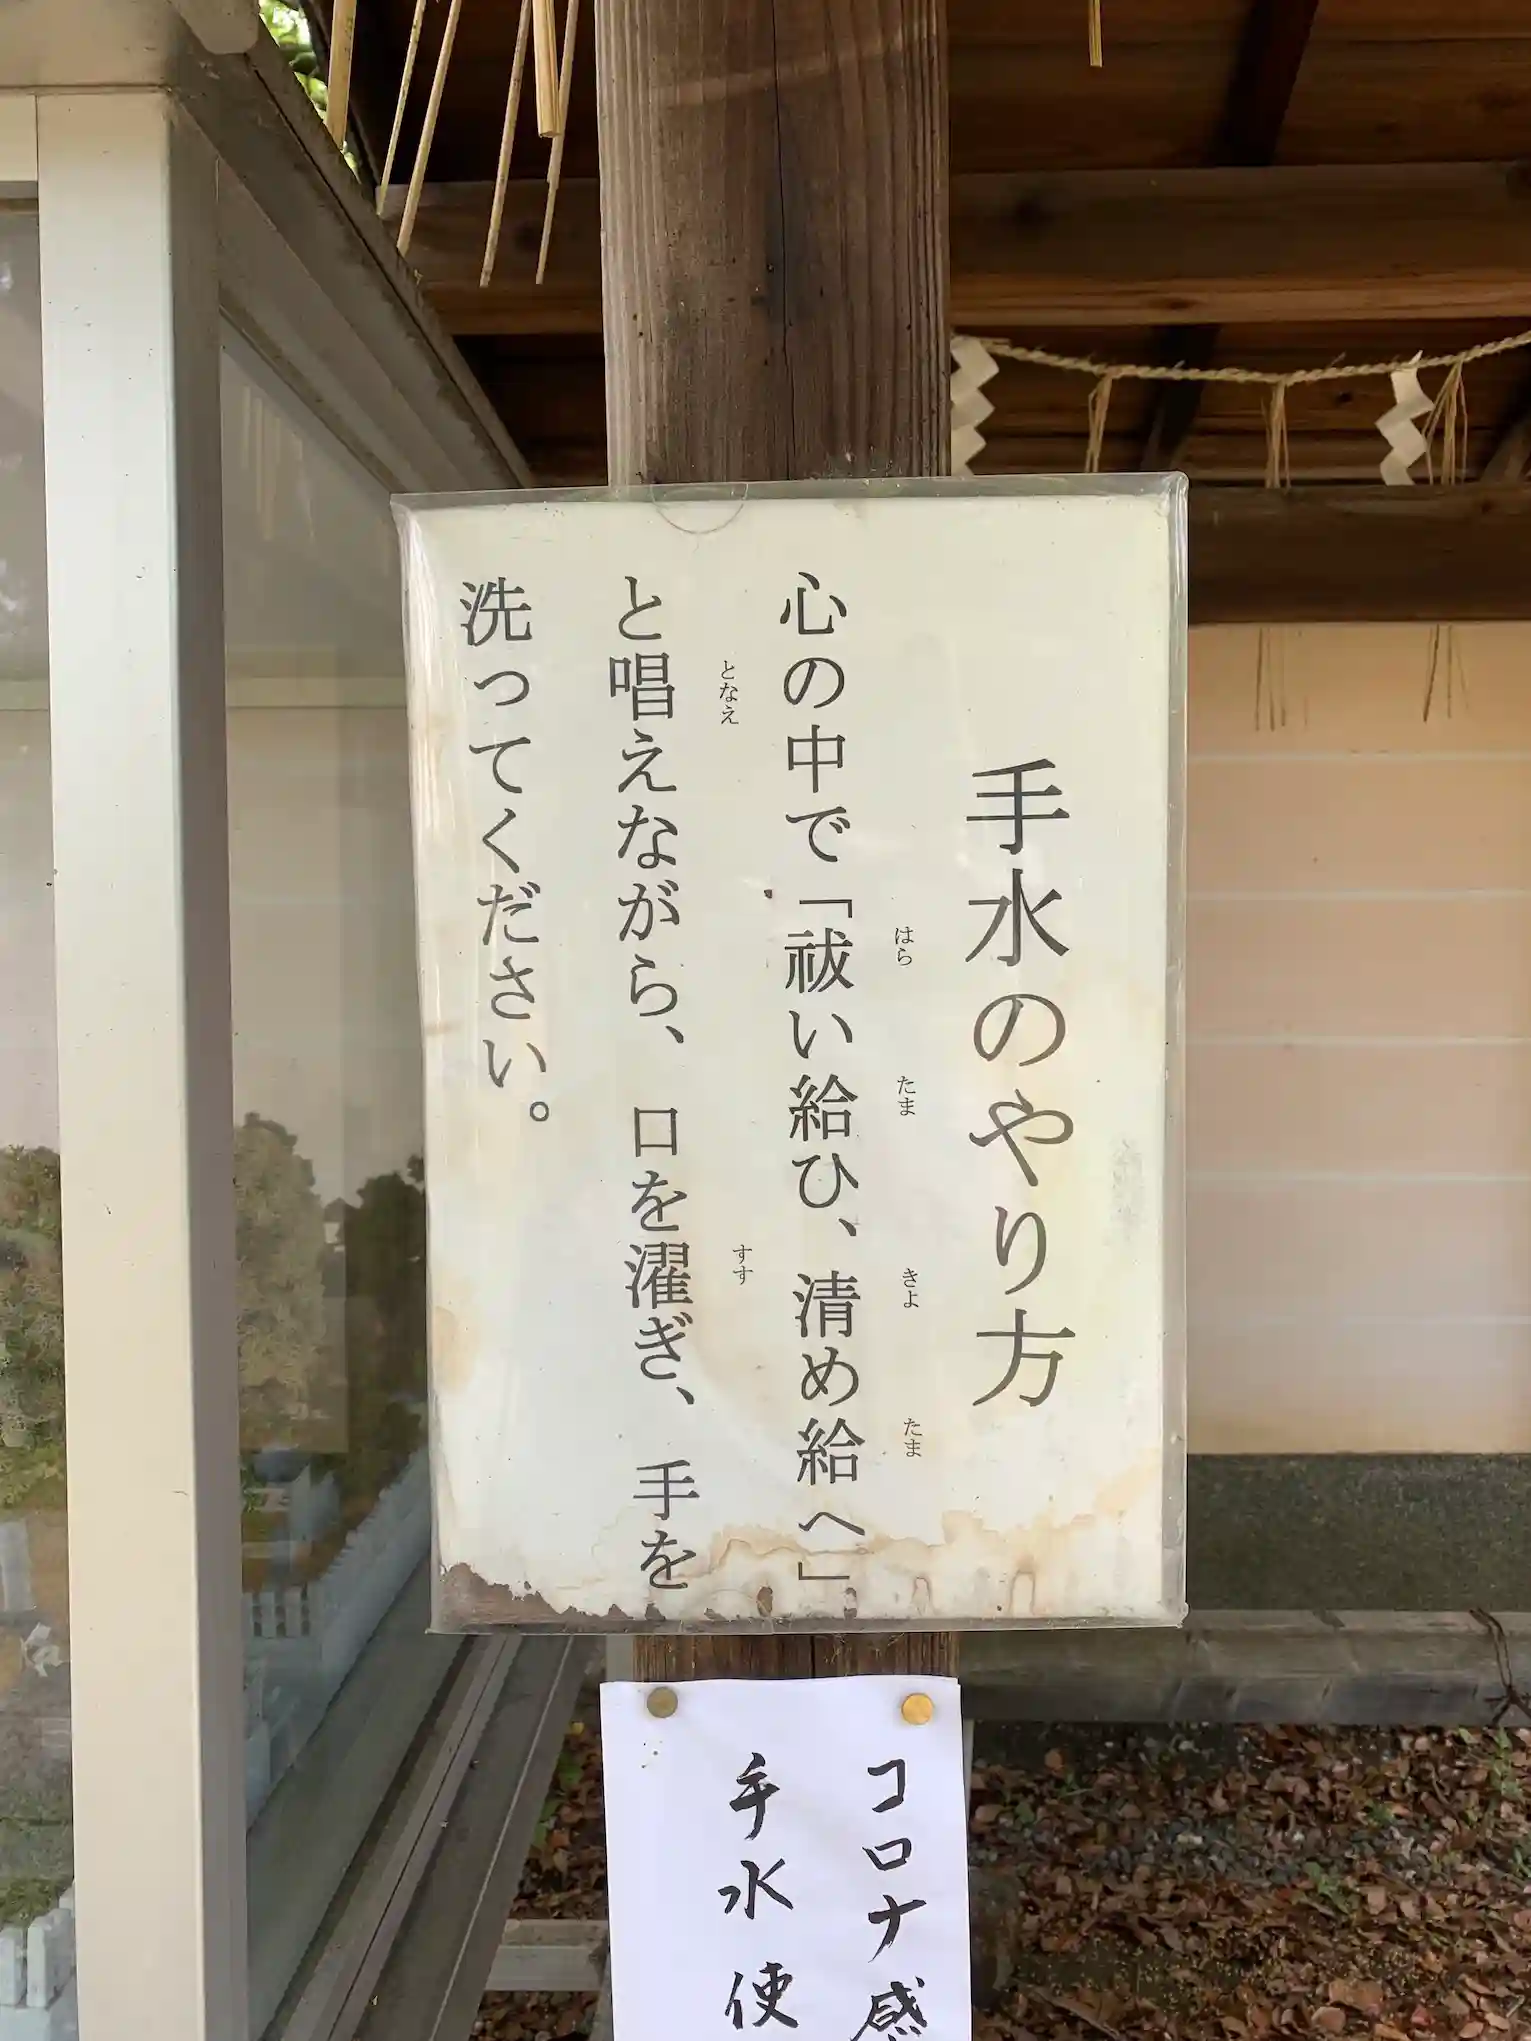 手水のやり方
心の中で「祓い給ひ、清め給へ」
はら
たま
きよ
たま
と唱えながら、口を濯ぎ、手を
となえ
すす
洗ってください。
コロナ感
手水使